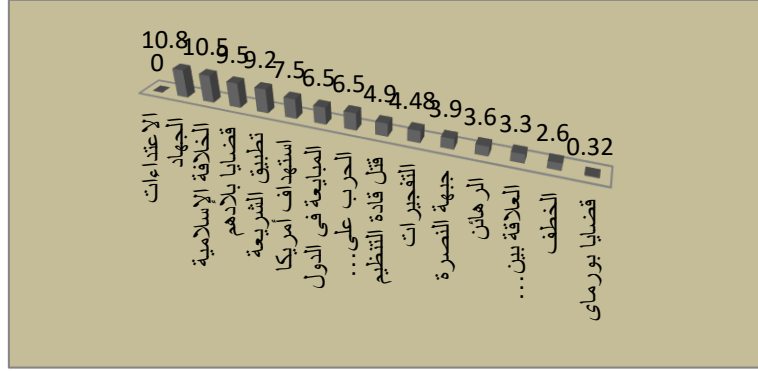 0
10.8
10.5
9.5
9.2
7.5
6.5
6.5
4.9
4.48
3.9
3.6
3.3
2.6
0.32
الاعتداءات
الجهاد
الخلافة الإسلامية
قضايا بلادهم
تطبيق الشريعة
استهداف أمريكا
المبايعة فى الدول
الحرب على...
قتل قادة التنظيم
التفجيرات
جبهة النصرة
الرهائن
العلاقة بين...
الخطف
قضايا بورماى